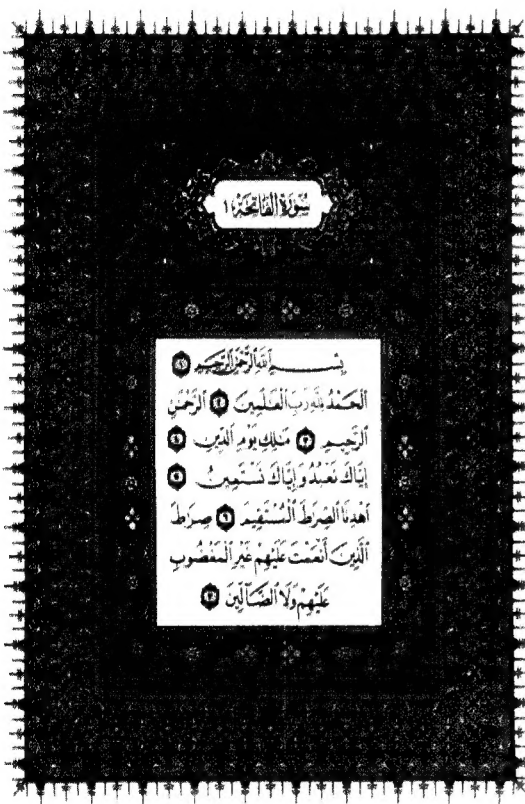 سُورَةُ الْفَاتِحَةِ ١
بِسْمِ ٱللَّهِ ٱلرَّحْمَٰنِ ٱلرَّحِيمِ ١
ٱلْحَمْدُ لِلَّهِ رَبِّ ٱلْعَٰلَمِينَ ٢ ٱلرَّحْمَٰنِ
ٱلرَّحِيمِ ٣ مَٰلِكِ يَوْمِ ٱلدِّينِ ٤
إِيَّاكَ نَعْبُدُ وَإِيَّاكَ نَسْتَعِينُ ٥
ٱهْدِنَا ٱلصِّرَٰطَ ٱلْمُسْتَقِيمَ ٦ صِرَٰطَ
ٱلَّذِينَ أَنْعَمْتَ عَلَيْهِمْ غَيْرِ ٱلْمَغْضُوبِ
عَلَيْهِمْ وَلَا ٱلضَّآلِّينَ ٧